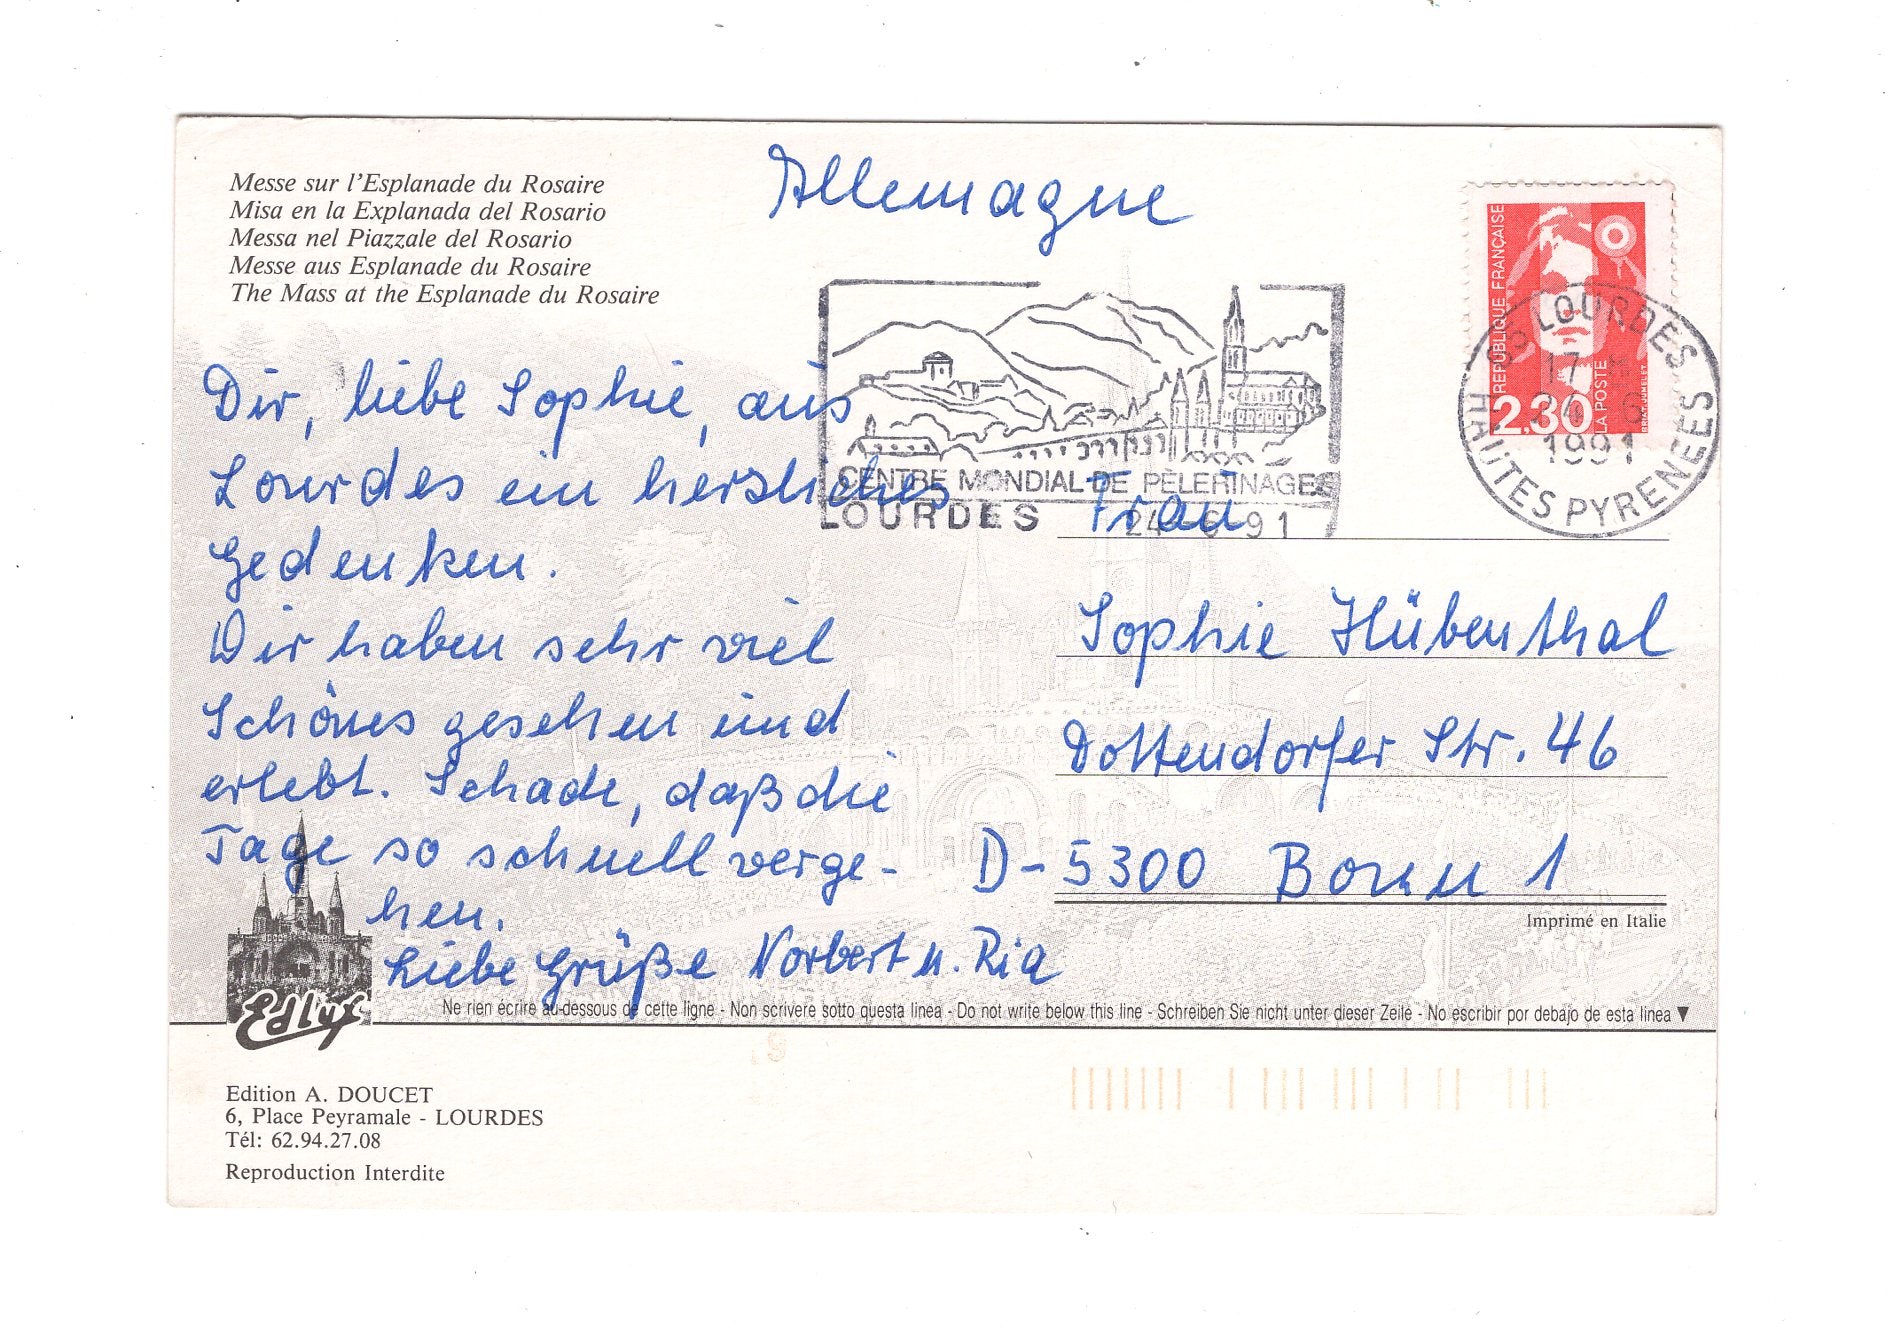 Messe sur l'Esplanade du Rosaire
Misa en la Explanada del Rosario
Messa nel Piazzale del Rosario
Messe aus Esplanade du Rosaire
The Mass at the Esplanade du Rosaire
Allemagne
REPUBLIQUE FRANÇAISE
2.30
LA POSTE
LOURDES
17
24 6
1991
HAUTES PYRENEES
CENTRE MONDIAL DE PÈLERINAGES
LOURDES 24 6 91
Dir, liebe Sophie, aus
Lourdes ein herzliches
Gedenken.
Wir haben sehr viel
Schönes gesehen und
erlebt. Schade, daß die
Tage so schnell verge-
hen.
Liebe Grüße Norbert u. Ria
Frau
Sophie Hübenthal
Dottendorfer Str. 46
D-5300 Bonn 1
Imprimé en Italie
Edlux
Ne rien écrire au-dessous de cette ligne - Non scrivere sotto questa linea - Do not write below this line - Schreiben Sie nicht unter dieser Zeile - No escribir por debajo de esta linea ▼
Edition A. DOUCET
6, Place Peyramale - LOURDES
Tél: 62.94.27.08
Reproduction Interdite